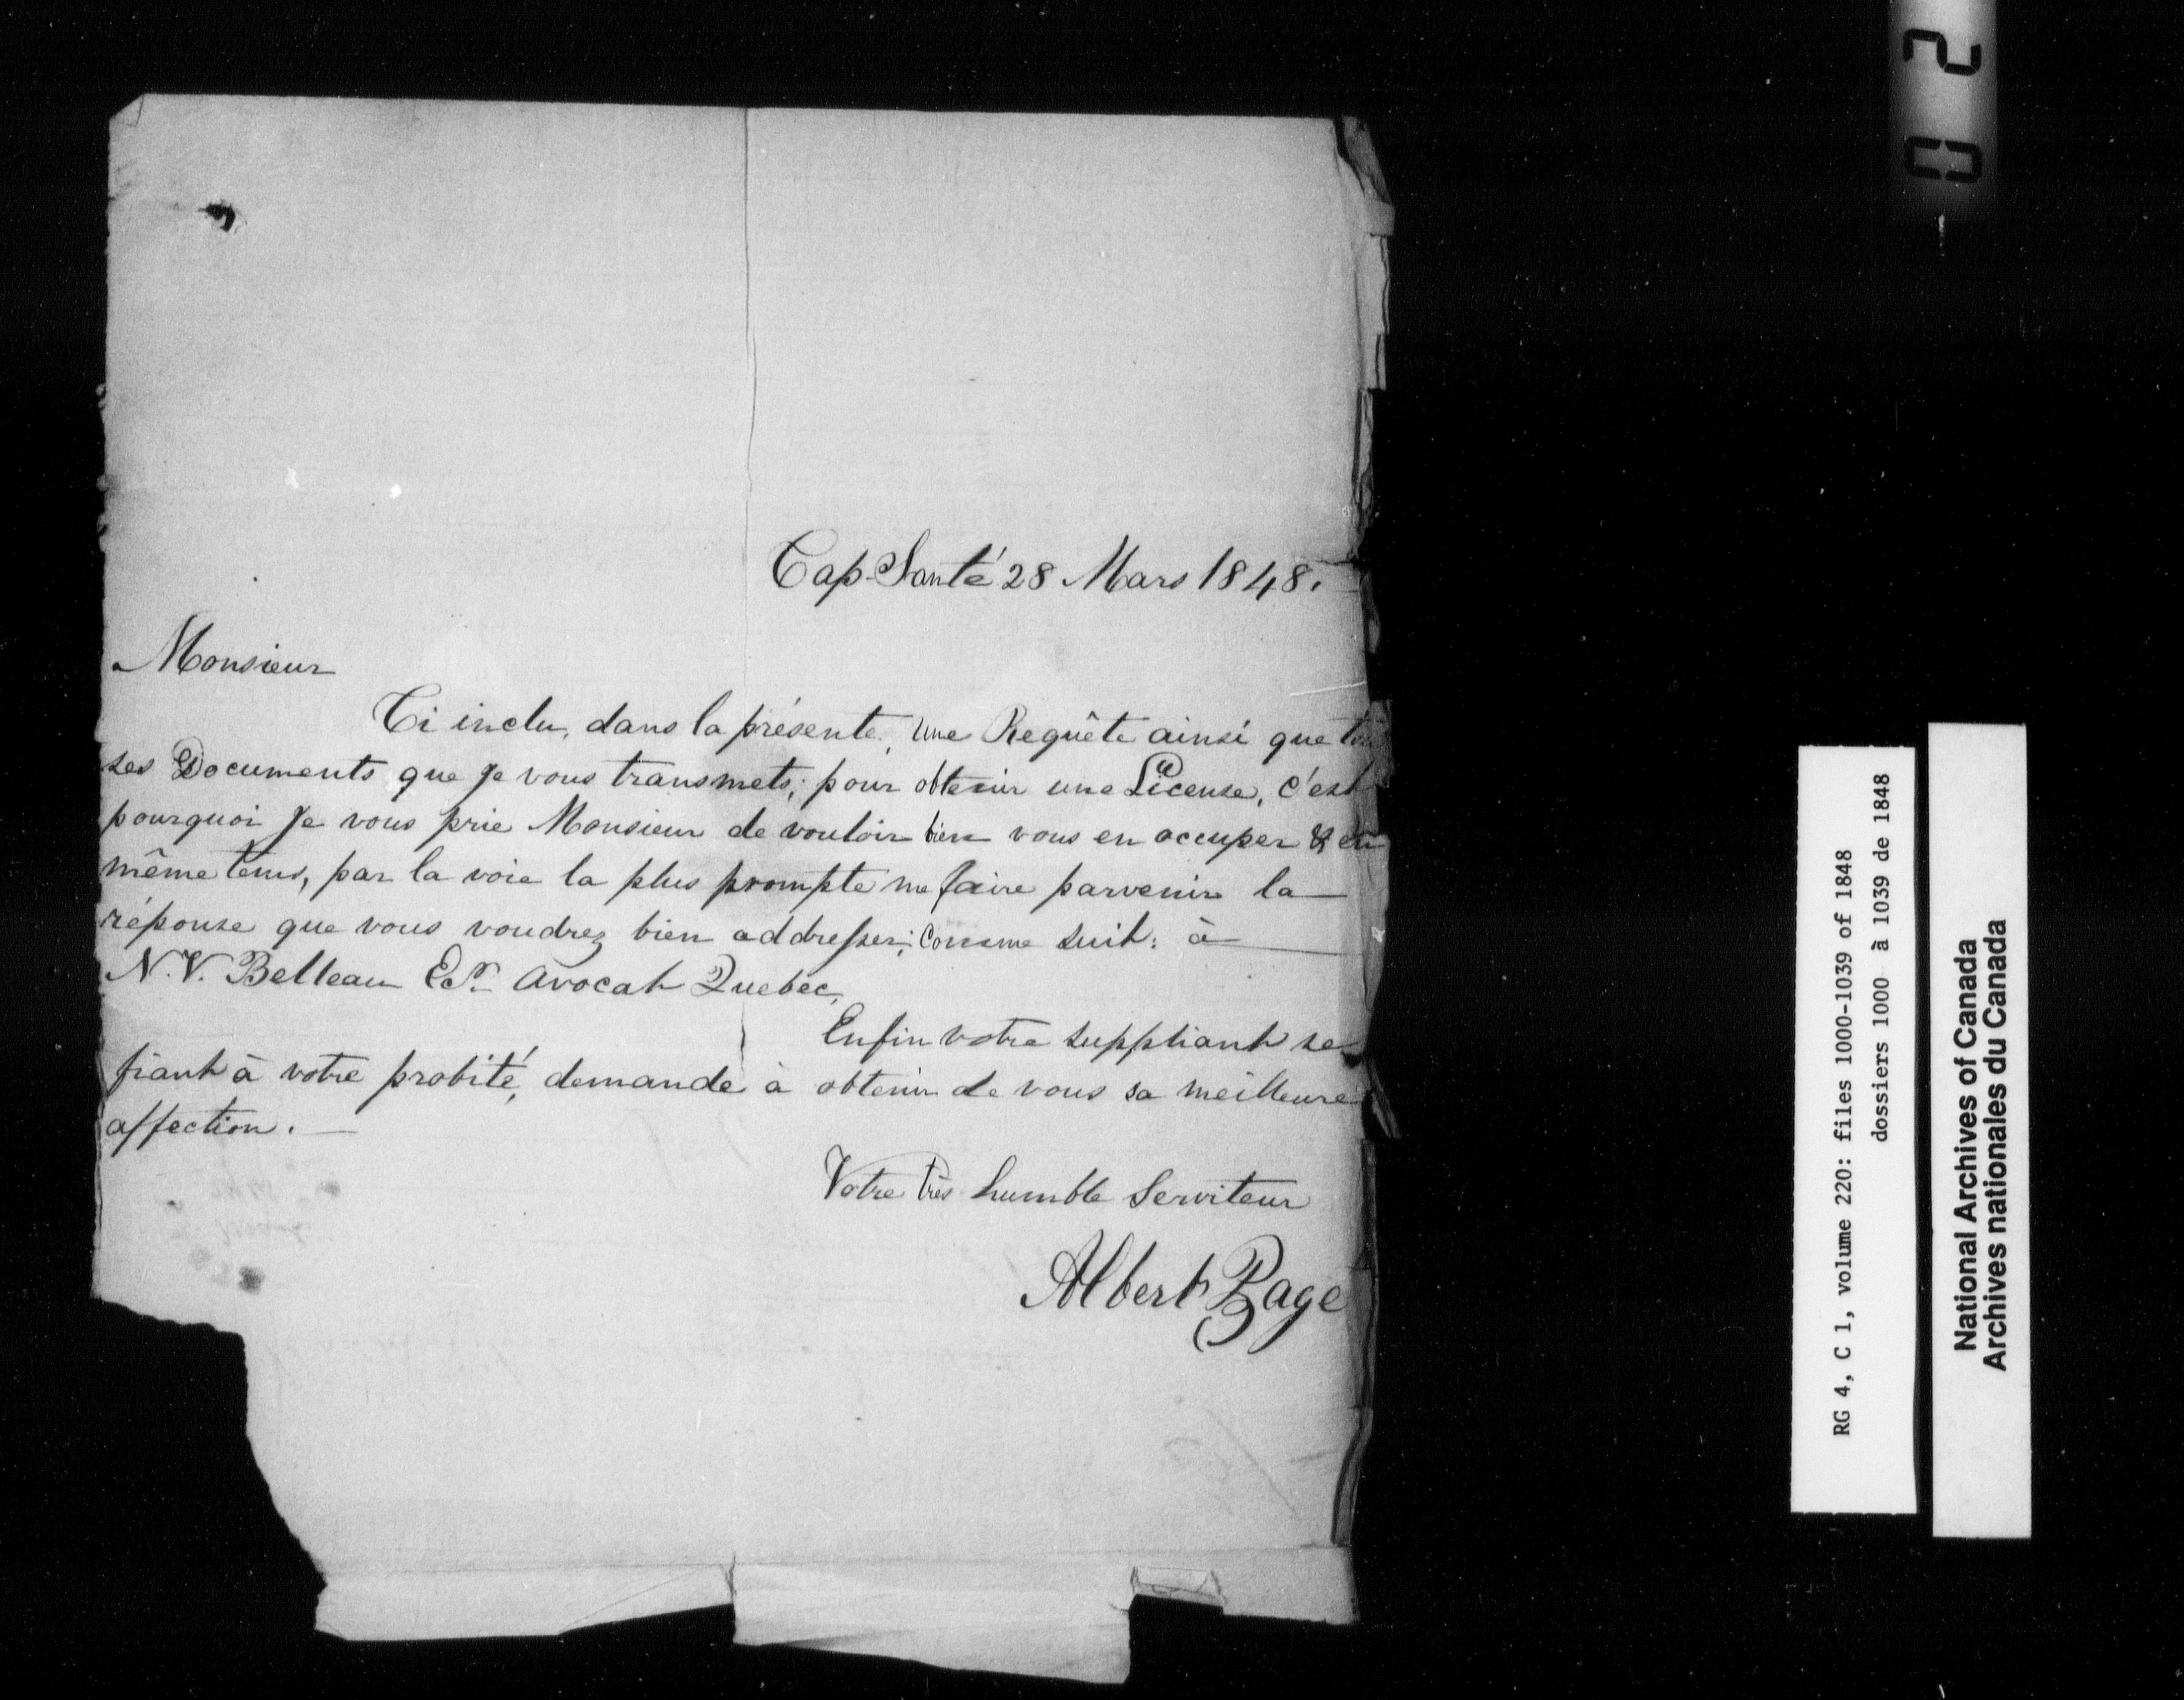 Cap-Santé 28 Mars 1848.
Monsieur
Ci inclu, dans la présente, une Requête ainsi que tous
ses Documents que Je vous transmets; pour obtenir une License, c'est
pourquoi Je vous prie Monsieur de vouloir bien vous en occuper & en
même tems, par la voie la plus prompte me faire parvenir la
réponse que vous voudrez bien addresser; comme suit: à
N. V. Belleau Ecr. Avocat Quebec,
Enfin votre suppliant se
fiant à votre probité, demande à obtenir de vous sa meilleure
affection.
Votre très humble Serviteur
Albert Page
RG 4, C 1, volume 220: files 1000-1039 of 1848
dossiers 1000 à 1039 de 1848
National Archives of Canada
Archives nationales du Canada
02